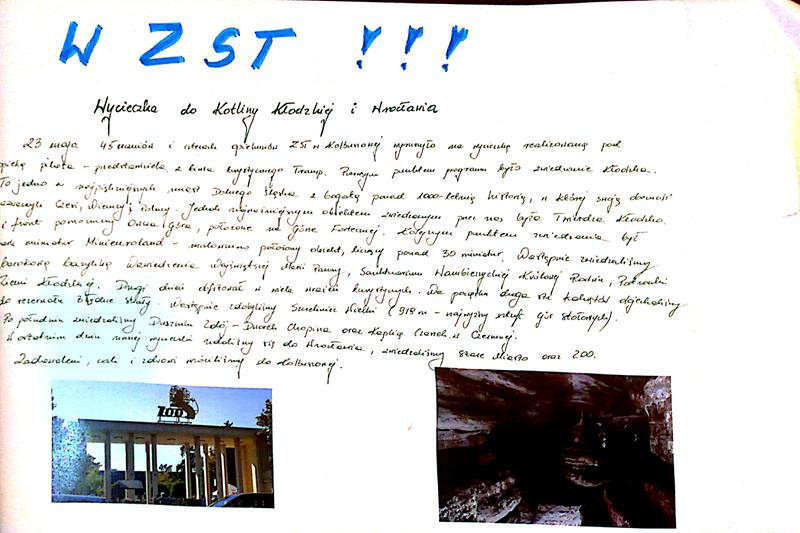 W ZST !!!
Wycieczka do Kotliny Kłodzkiej i Wrocławia
23 maja 45 uczniów i czterech opiekunów ZST w Kolbuszowej wyruszyło na wycieczkę realizowaną pod
opieką pilota – przedstawiciela z biura turystycznego Tramp. Pierwszym punktem programu było zwiedzanie Kłodzka.
To jedno z najpiękniejszych miast Dolnego Śląska z bogatą ponad 1000-letnią historią, w której swoją obecność
zaznaczyli Czesi, Niemcy i Polacy. Jednak najważniejszym obiektem zwiedzanym przez nas była Twierdza Kłodzko.
i front pomocniczy Owcza Góra, położone na Górze Fortecznej. Kolejnym punktem zwiedzania był
park miniatur Minieuroland – malowniczo położony obiekt, liczący ponad 30 miniatur. Następnie zwiedzaliśmy
barokową bazylikę Nawiedzenia Najświętszej Marii Panny, Sanktuarium Wambierzyckiej Królowej Rodzin, Patronki
Ziemi Kłodzkiej. Drugi dzień obfitował w wiele wrażeń turystycznych. Na początku drogą stu zakrętów dojechaliśmy
do rezerwatu Błędne Skały. Następnie zdobyliśmy Szczeliniec Wielki (919 m – najwyższy szczyt Gór Stołowych).
Po południu zwiedzaliśmy Duszniki Zdrój – Dworek Chopina oraz Kaplicę Czaszek w Czermnej.
W ostatnim dniu naszej wycieczki udaliśmy się do Wrocławia, zwiedzaliśmy Stare Miasto oraz ZOO.
Zadowoleni, cali i zdrowi wróciliśmy do Kolbuszowej.
ZOO